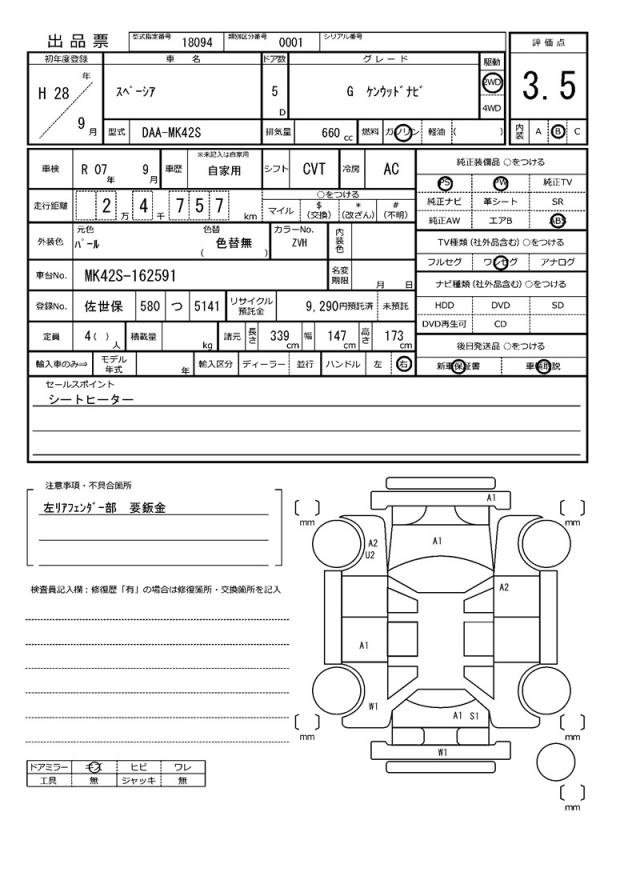 出品票 型式指定番号 18094 類別区分番号 0001 シリアル番号
初年度登録 車名 ドア数 グレード 駆動 評価点
H 28 年 9 月 スペーシア 5 D G ケンウッドナビ 2WD 4WD 3.5
型式 DAA-MK42S 排気量 660 cc 燃料 ガソリン 軽油 ( ) 内装 A B C
車検 R 07 年 9 月 車歴 ※未記入は自家用 自家用 シフト CVT 冷房 AC
純正装備品 ○をつける
PS PW 純正TV
純正ナビ 革シート SR
純正AW エアB ABS
走行距離 2 万 4 千 7 5 7 km ○をつける
マイル $ (交換) * (改ざん) # (不明)
外装色 元色 パール 色替 色替無 ( ) カラーNo. ZVH 内装色
TV種類 (社外品含む) ○をつける
フルセグ ワンセグ アナログ
車台No. MK42S-162591 名変期限 月 日
ナビ種類 (社外品含む) ○をつける
登録No. 佐世保 580 つ 5141 リサイクル預託金 9,290円預託済 未預託
HDD DVD SD
DVD再生可 CD
定員 4 ( ) 人 積載量 kg 諸元 長さ 339 cm 幅 147 cm 高さ 173 cm
後日発送品 ○をつける
輸入車のみ⇒ モデル年式 年 輸入区分 ディーラー 並行 ハンドル 左 右
新車保証書 車輌取説
セールスポイント
シートヒーター
注意事項・不具合箇所
左リアフェンダー部 要鈑金
検査員記入欄：修復歴「有」の場合は修復箇所・交換箇所を記入
A1
mm mm
A2
U2
A1
A2
A1
W1
A1 S1
mm mm
W1
mm
ドアミラー キズ ヒビ ワレ
工具 無 ジャッキ 無